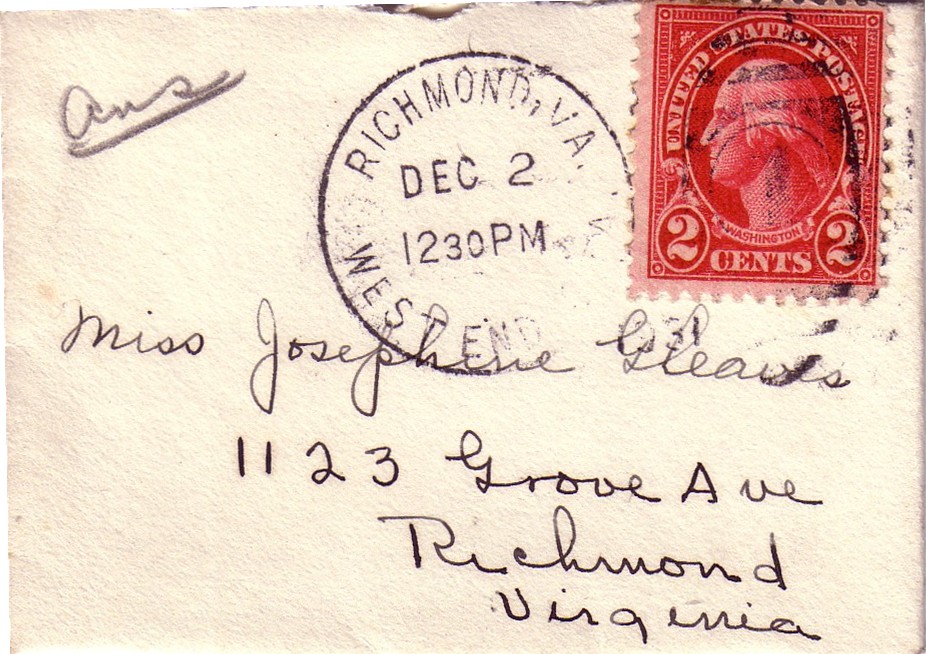 Ans
RICHMOND, VA.
DEC 2
1230PM
WEST END
1931
UNITED STATES POSTAGE
WASHINGTON
2 CENTS 2
Miss Josephine Gleaves
1123 Grove Ave
Richmond
Virginia